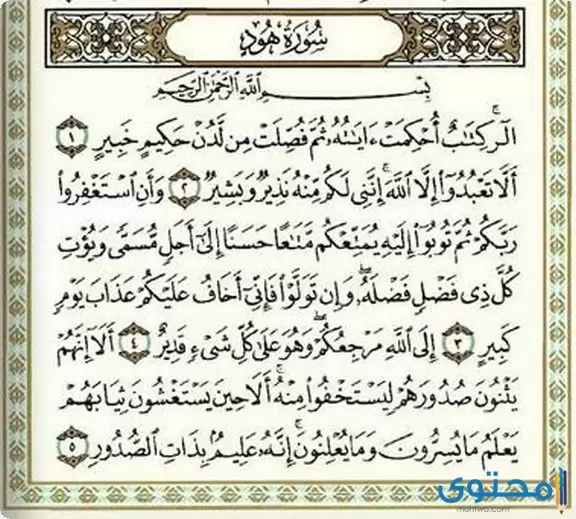 سُورَةُ هُودٍ
بِسْمِ ٱللَّهِ ٱلرَّحْمَٰنِ ٱلرَّحِيمِ
الٓر ۚ كِتَٰبٌ أُحْكِمَتْ ءَايَٰتُهُۥ ثُمَّ فُصِّلَتْ مِن لَّدُنْ حَكِيمٍ خَبِيرٍ ١
أَلَّا تَعْبُدُوٓا۟ إِلَّا ٱللَّهَ ۚ إِنَّنِى لَكُم مِّنْهُ نَذِيرٌ وَبَشِيرٌ ٢ وَأَنِ ٱسْتَغْفِرُوا۟
رَبَّكُمْ ثُمَّ تُوبُوٓا۟ إِلَيْهِ يُمَتِّعْكُم مَّتَٰعًا حَسَنًا إِلَىٰٓ أَجَلٍ مُّسَمًّى وَيُؤْتِ
كُلَّ ذِى فَضْلٍ فَضْلَهُۥ ۖ وَإِن تَوَلَّوْا۟ فَإِنِّىٓ أَخَافُ عَلَيْكُمْ عَذَابَ يَوْمٍ
كَبِيرٍ ٣ إِلَى ٱللَّهِ مَرْجِعُكُمْ ۖ وَهُوَ عَلَىٰ كُلِّ شَىْءٍ قَدِيرٌ ٤ أَلَآ إِنَّهُمْ
يَثْنُونَ صُدُورَهُمْ لِيَسْتَخْفُوا۟ مِنْهُ ۚ أَلَا حِينَ يَسْتَغْشُونَ ثِيَابَهُمْ
يَعْلَمُ مَا يُسِرُّونَ وَمَا يُعْلِنُونَ ۚ إِنَّهُۥ عَلِيمٌۢ بِذَاتِ ٱلصُّدُورِ ٥
محتوى
mohtwa.com